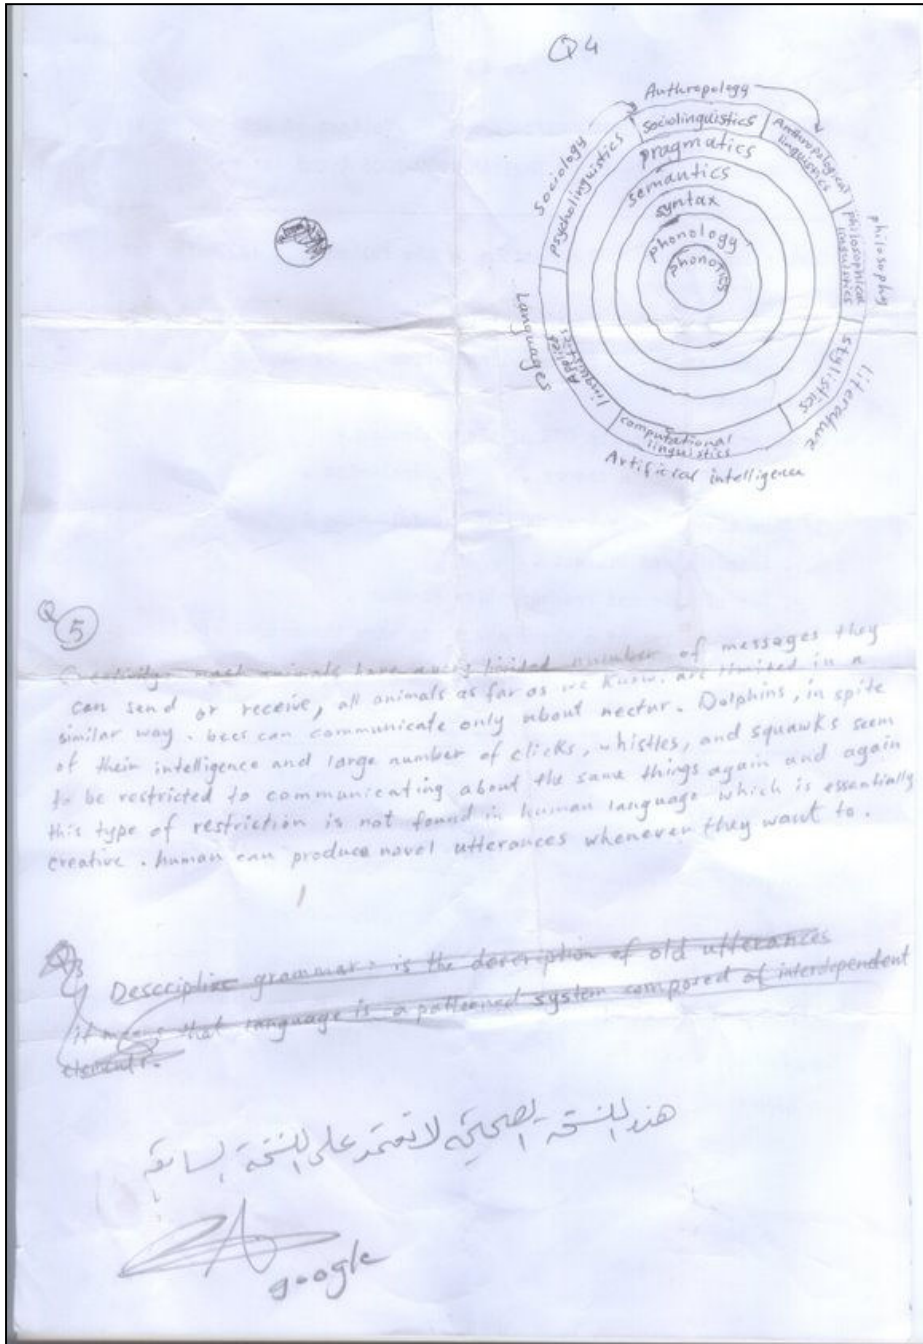 Q4
Anthropology
sociolinguistics
Anthropological
linguistics
sociology
psycholinguistics
pragmatics
semantics
syntax
phonology
phonotics
philosophical
linguistics
philosophy
Languages
Applied
linguistics
stylistics
literature
computational
linguistics
Artificial intelligence
Q 5
Creativity: most animals have a very limited number of messages they
can send or receive, all animals as far as we know. are limited in a
similar way. bees can communicate only about nectar. Dolphins, in spite
of their intelligence and large number of clicks, whistles, and squawks seem
to be restricted to communicating about the same things again and again
this type of restriction is not found in human language which is essentially
creative. human can produce novel utterances whenever they want to.
grammar: is the description of old utterances
it means that language is a patterned system composed of interdependent
elements.
هذه النسخة الصحيحة لا تعتمد على النسخة السابقة
google